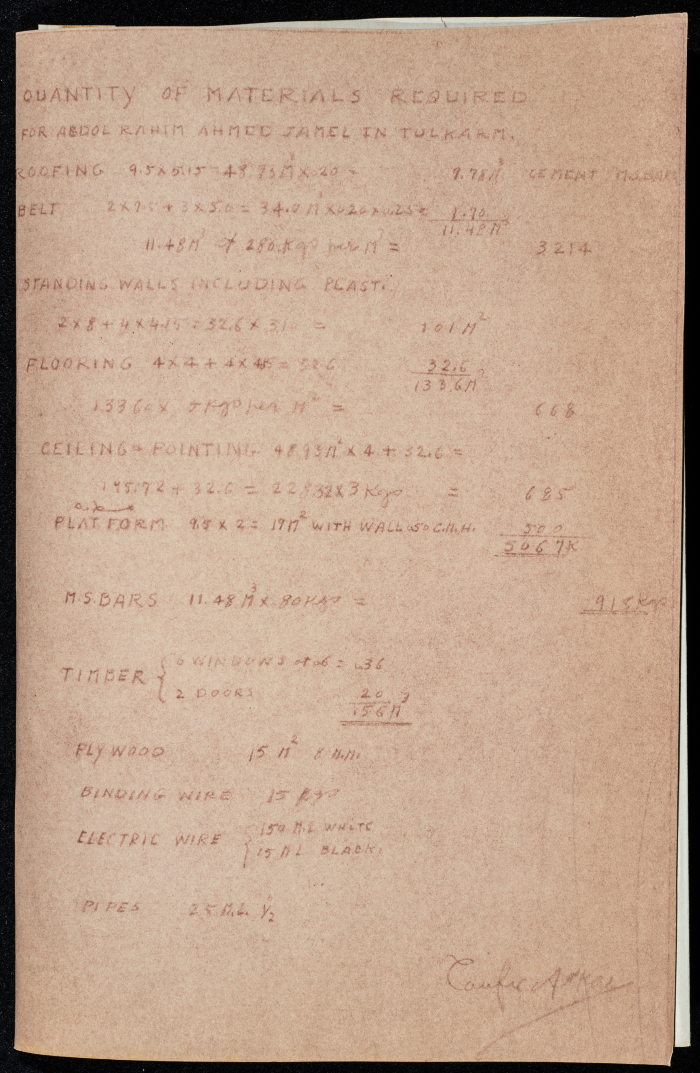 QUANTITY OF MATERIALS REQUIRED
FOR ABDOL RAHIM AHMED JAMEL IN TULKARM.
ROOFING 9.5x5.15=48.93M²x.20= 9.78M³ CEMENT M.S.BARS
BELT 2x9.5+3x5.0=34.0M x0.20x0.25= 1.70
11.48M³
11.48M³ 280 Kgs per M³ = 3214
STANDING WALLS INCLUDING PLAST.
2x8+4x4.15=32.6x3.10 = 101M²
FLOORING 4x4+4x4.15=32.6 32.6
133.6M
133.60x 5 Kgs per M² = 668
CEILING + POINTING 48.93M²x4+32.6=
195.72+32.6=228.32x3 Kgs = 685
PLATFORM 9.5x2=19M² WITH WALL 050 C.M.H. 500
5067K
M.S.BARS 11.48M³x80Kgs = 918Kgs
TIMBER 6 WINDOWS at .06 = .36
2 DOORS .20
.56M³
PLYWOOD 15M² 8 M.M.
BINDING WIRE 15 Kgs
ELECTRIC WIRE 150 M.L WHITE
15 M.L BLACK.
PIPES 25 M.L. ½